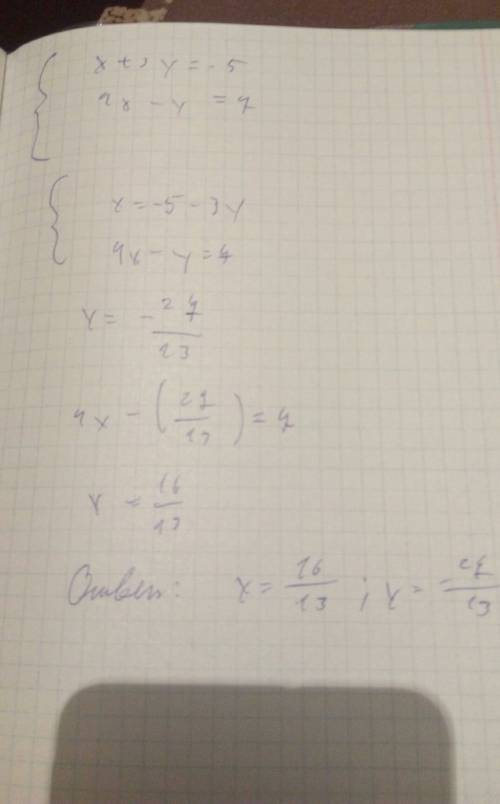 x + 3y = -5
4x - y = 7
x = -5 - 3y
4x - y = 7
y = -27/13
4x - (27/13) = 7
x = 16/13
Ответ: x = 16/13 ; y = -27/13